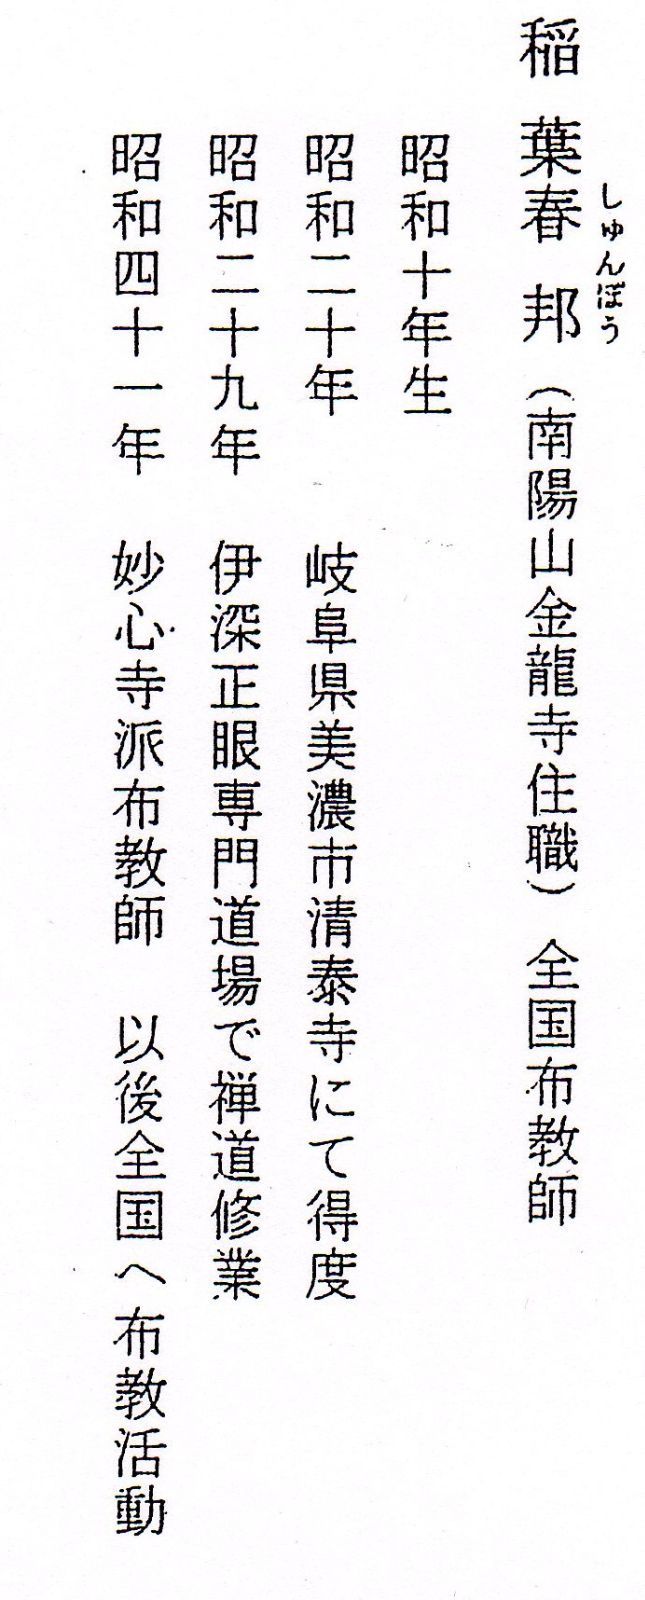 稲葉春邦（南陽山金龍寺住職）　全国布教師
しゅんぽう
昭和十年生
昭和二十年　岐阜県美濃市清泰寺にて得度
昭和二十九年　伊深正眼専門道場で禅道修業
昭和四十一年　妙心寺派布教師　以後全国へ布教活動